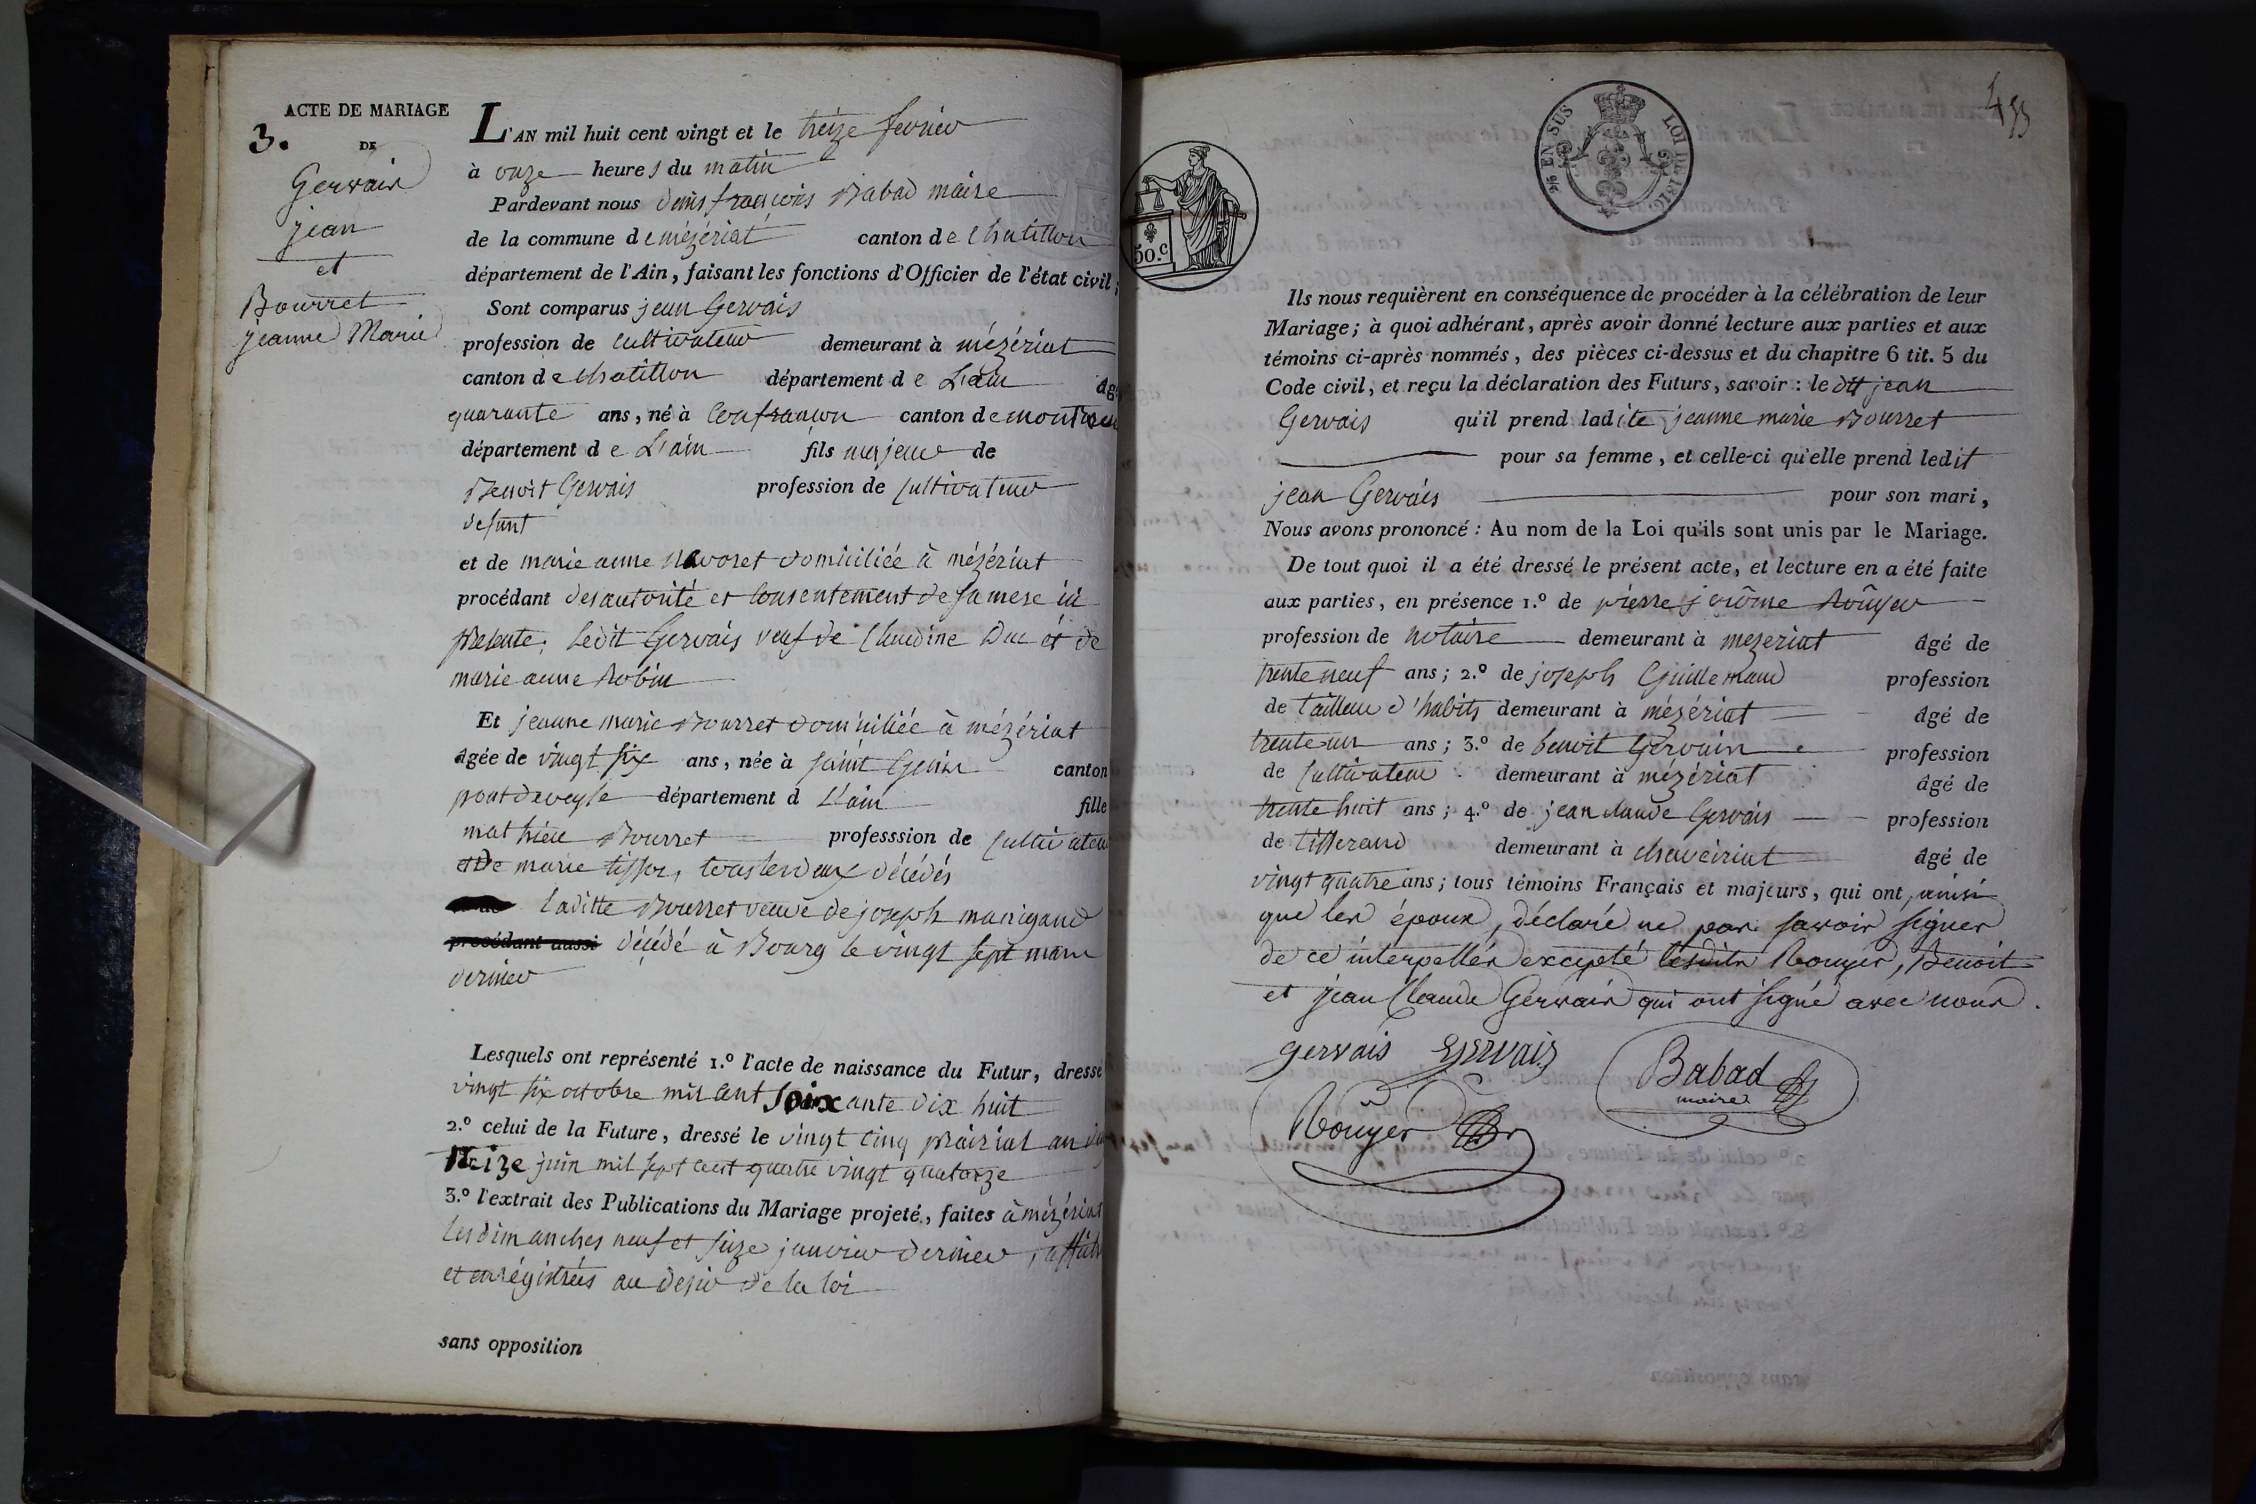 ACTE DE MARIAGE
3. DE
Gervais
jean
et
Bourret
jeanne Marie
L'AN mil huit cent vingt et le treize fevrier
à onze heures du matin
Pardevant nous denis françois Babad maire
de la commune de mézériat canton de Chatillon
département de l'Ain, faisant les fonctions d'Officier de l'état civil;
Sont comparus jean Gervais
profession de cultivateur demeurant à mézériat
canton de chatillon département de L'ain âg
quarante ans, né à Confrançon canton de
département de L'ain fils majeur de
Benoit Gervais profession de Cultivateur
defunt
et de marie anne Navoret domiciliée à mézériat
procédant des autorité et Consentement de sa mere ici
présente, ledit Gervais veuf de Claudine Duc et de
marie anne Robin
Et jeanne marie Bourret domiciliée à mézériat
âgée de vingt six ans, née à saint Genis canton
pontdeveyle département d L'ain fille
mathieu Bourret professsion de Cultivateu
et de marie tissot, tous les deux décédés
laditte Bourret veuve de joseph manigand
procédant aussi décédé à Bourg le vingt sept mars
dernier
Lesquels ont représenté 1.º l'acte de naissance du Futur, dressé
vingt six octobre mil cent soixante dix huit
2.º celui de la Future, dressé le vingt cinq prairial an
treize juin mil sept cent quatre vingt quatorze
3.º l'extrait des Publications du Mariage projeté, faites à mézériat
les dimanches neuf et seize janvier dernier,
et enrégistrées au desir de la loi
sans opposition
453
¼ EN SUS LOI DE 1816.
50.c
Ils nous requièrent en conséquence de procéder à la célébration de leur
Mariage; à quoi adhérant, après avoir donné lecture aux parties et aux
témoins ci-après nommés, des pièces ci-dessus et du chapitre 6 tit. 5 du
Code civil, et reçu la déclaration des Futurs, savoir: le dit jean
Gervais qu'il prend ladite jeanne marie Bourret
pour sa femme, et celle-ci qu'elle prend ledit
jean Gervais pour son mari,
Nous avons prononcé: Au nom de la Loi qu'ils sont unis par le Mariage.
De tout quoi il a été dressé le présent acte, et lecture en a été faite
aux parties, en présence 1.º de pierre jérôme Roûyer
profession de notaire demeurant à mezeriat âgé de
trente neuf ans; 2.º de joseph Guillemaud profession
de tailleur d'habits demeurant à mézériat âgé de
trente un ans; 3.º de benoit Gervais profession
de Cultivateur demeurant à mézériat âgé de
trente huit ans; 4.º de jean claude Gervais profession
de tisserand demeurant à chaveiriat âgé de
vingt quatre ans; tous témoins Français et majeurs, qui ont, ainsi
que les époux, déclaré ne pas savoir signer
de ce interpellés excepté lesdits Rouyer, Benoit
et jean Claude Gervais qui ont signé avec nous.
gervais Gervais Babad
maire
Roûyer